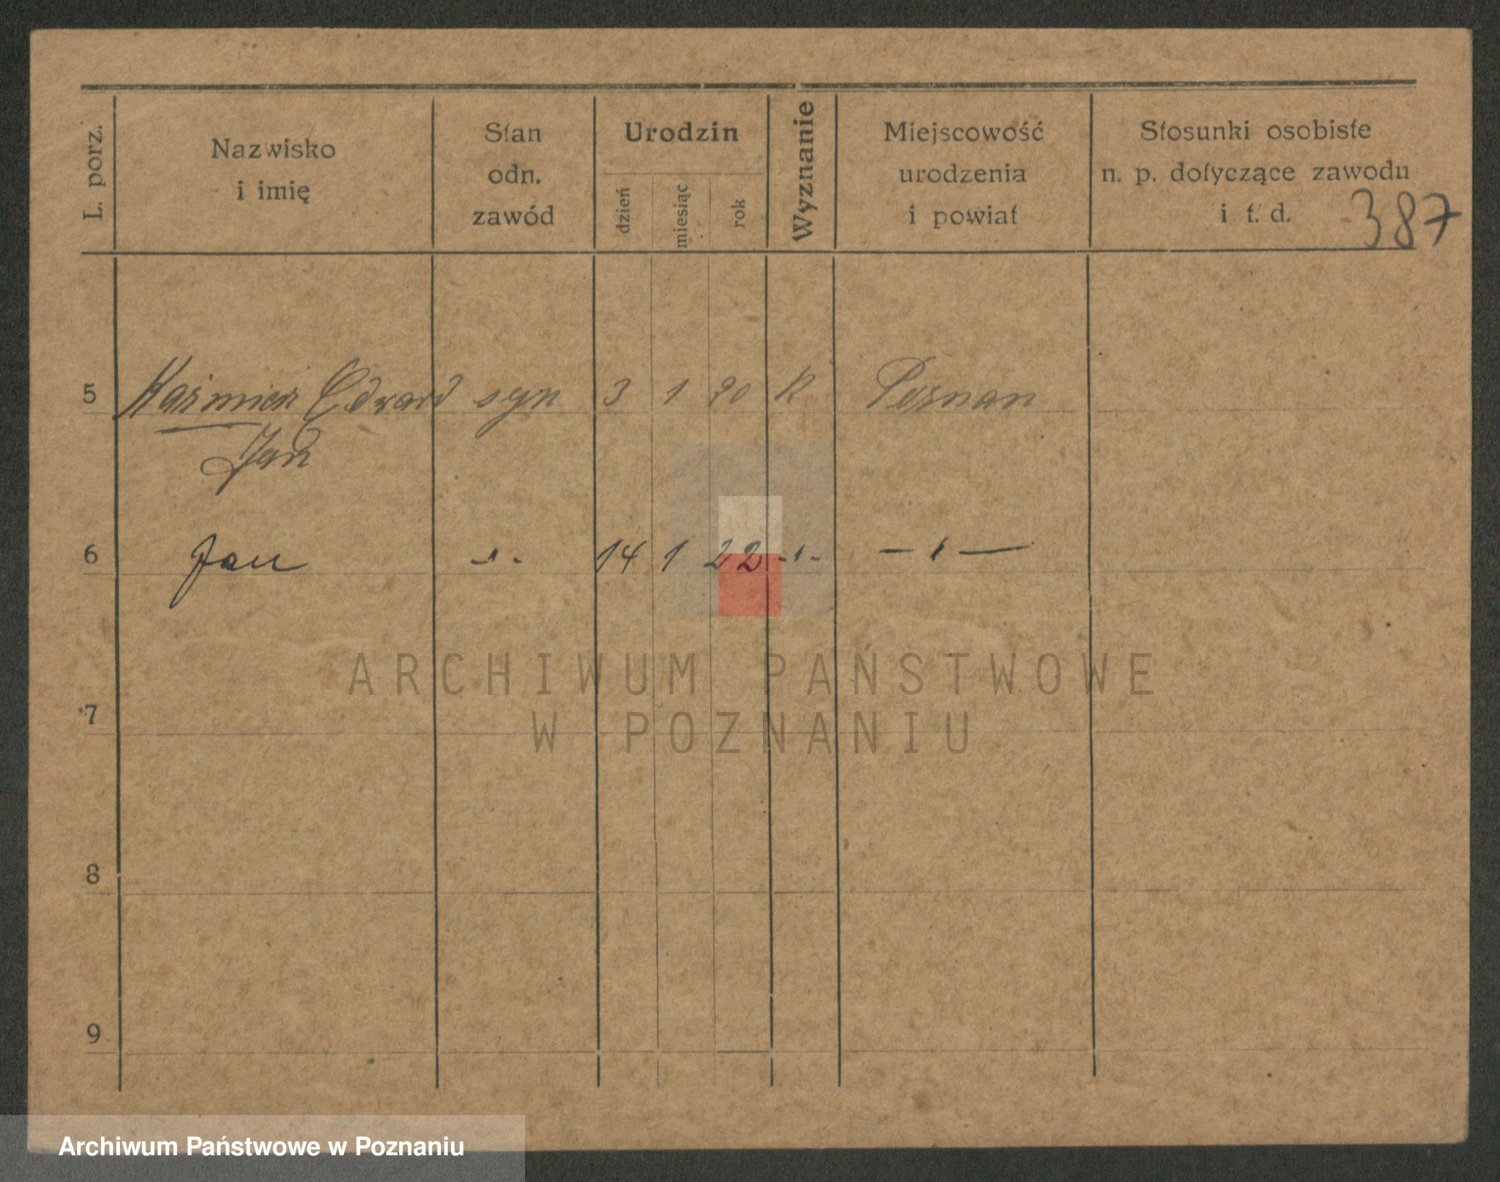 L. porz.
Nazwisko
i imię
Stan
odn.
zawód
Urodzin
dzień
miesiąc
rok
Wyznanie
Miejscowość
urodzenia
i powiat
Stosunki osobiste
n. p. dotyczące zawodu
i t. d.
387
5 Kaźmierz Edward syn 3 1 20 k Poznań
Jan
6 Jan -"- 14 1 22 -"- -"-
ARCHIWUM PAŃSTWOWE
W POZNANIU
7
8
9
Archiwum Państwowe w Poznaniu